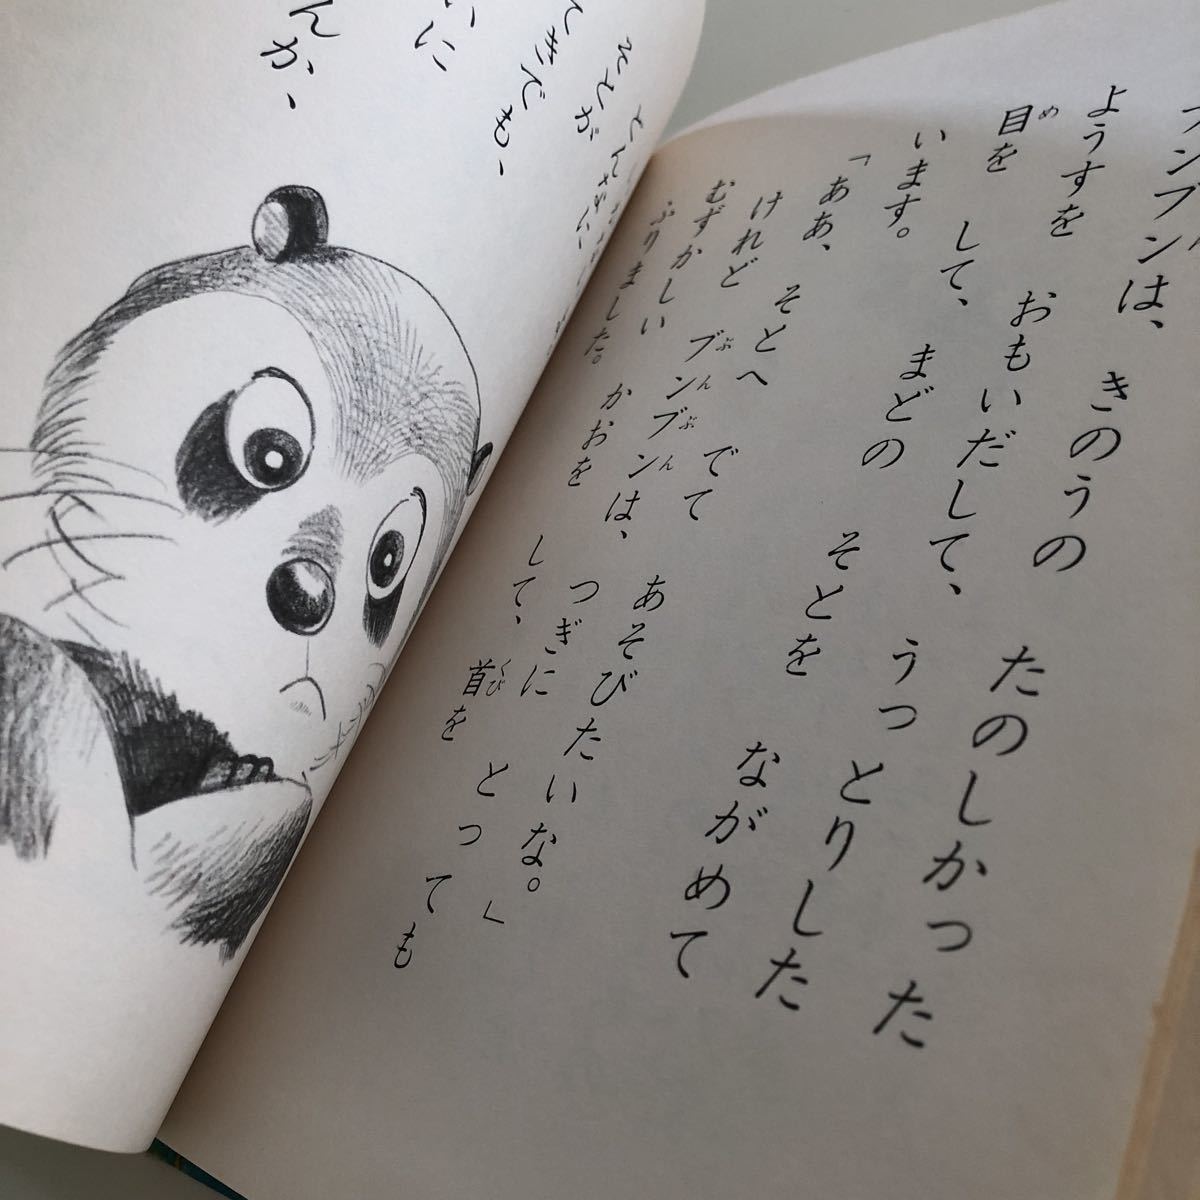 ブンブンは、 きのうの たのしかった
ようすを おもいだして、 うっとりした
目を して、 まどの そとを ながめて
います。
「ああ、 そとへ でて あそびたいな。」
けれど ブンブンは、 つぎに とっても
むずかしい かおを して、 首を
ふりました。
どんなに
そとが
てきでも、
いに
んか、